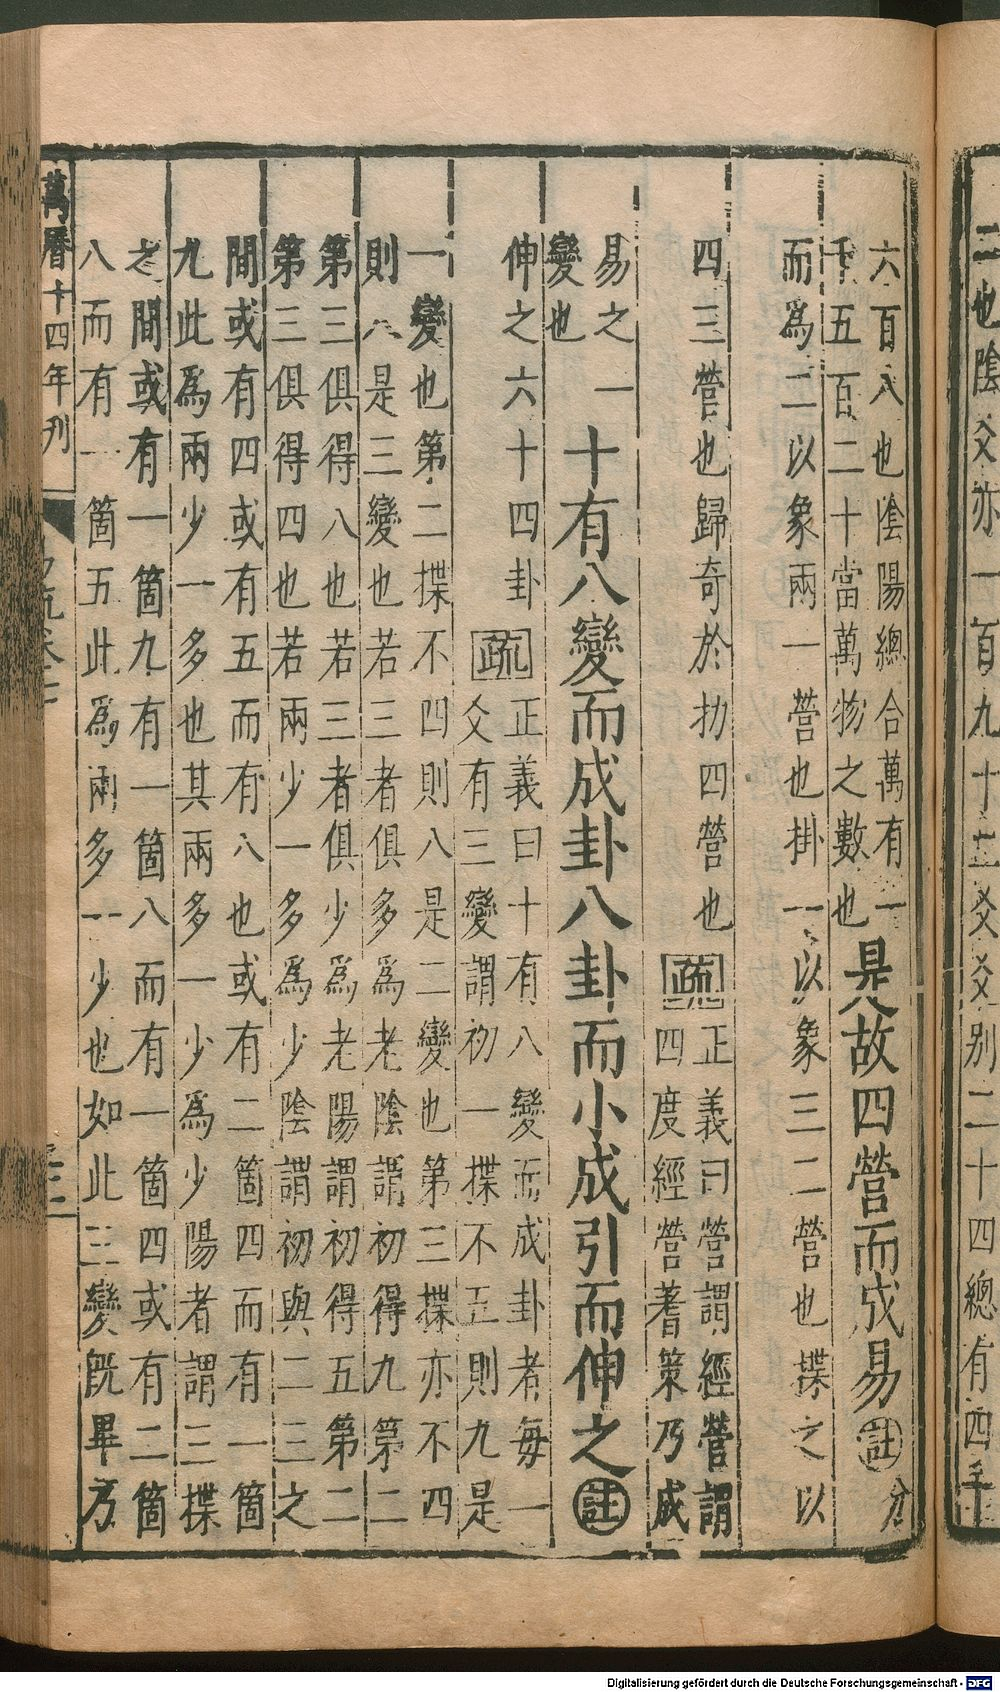 二也陰爻亦一百九十二爻爻別二十四總有四千
六百八也陰陽總合萬有一
千五百二十當萬物之數也
是故四營而成易
註
分
而爲二以象兩一營也掛一以象三二營也揲之以
四三營也歸奇於扐四營也
疏
正義曰營謂經營謂
四度經營蓍策乃成
易之一
變也
十有八變而成卦八卦而小成引而伸之
註
伸之六十四卦
疏
正義曰十有八變而成卦者每一
爻有三變謂初一揲不五則九是
一變也第二揲不四則八是二變也第三揲亦不四
則八是三變也若三者俱多爲老陰謂初得九第二
第三俱得八也若三者俱少爲老陽謂初得五第二
第三俱得四也若兩少一多爲少陰謂初與二三之
間或有四或有五而有八也或有二箇四而有一箇
九此爲兩少一多也其兩多一少爲少陽者謂三揲
之間或有一箇九有一箇八而有一箇四或有二箇
八而有一箇五此爲兩多一少也如此三變旣畢乃
萬曆十四年刊
Digitalisierung gefördert durch die Deutsche Forschungsgemeinschaft - DFG